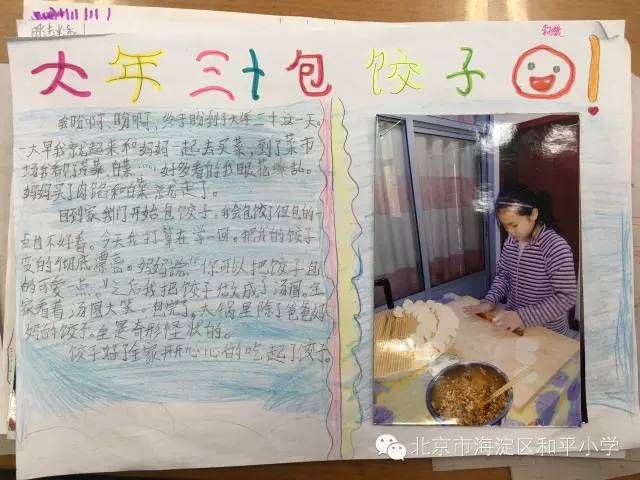 大年三十包饺子!
我盼啊,盼啊,终于盼到了大年三十这一天。
一大早我就起来和妈妈一起去买菜,到了菜市
场我们有菠菜、白菜……好多看的我眼花缭乱。
妈妈买了肉馅和白菜就走了。
回到家我们开始包饺子。我会包饺子但包的
一点也不好看。今天我打算在学一回。把我的饺子
变的彻底漂亮。妈妈说:“你可以把饺子包
的可爱一点。”之后我把饺子做成了汤圆。全
家看着汤圆大笑。包完了,大锅里除了爸爸妈
妈的饺子。全是奇形怪状的。
饺子好了全家开开心心的吃起了饺子
北京市海淀区和平小学